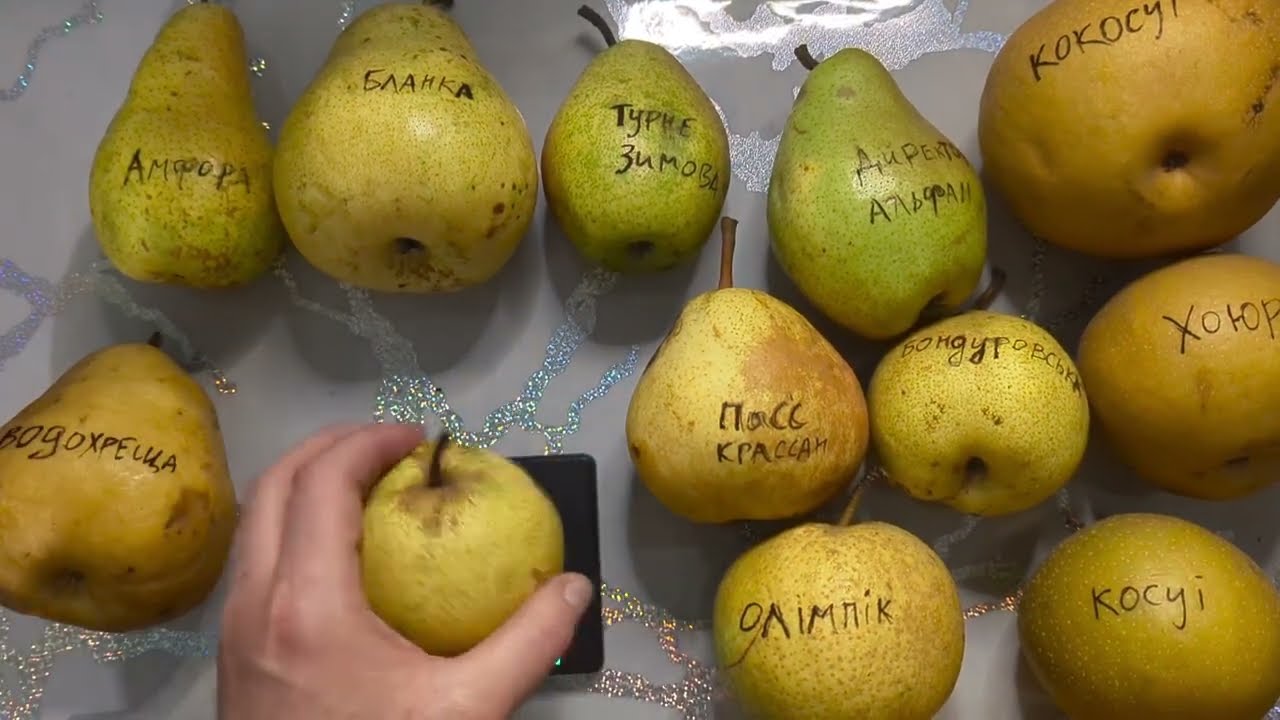 Амфора
БЛАНКА
ТУРНЕ
ЗИМОВА
ДИРЕКТО
АЛЬФАН
КОКОСУІ
ВОДОХРЕЩА
ПАСС
КРАССАН
БОНДУРОВСЬКА
ХОЮР
ОЛІМПІК
КОСУІ